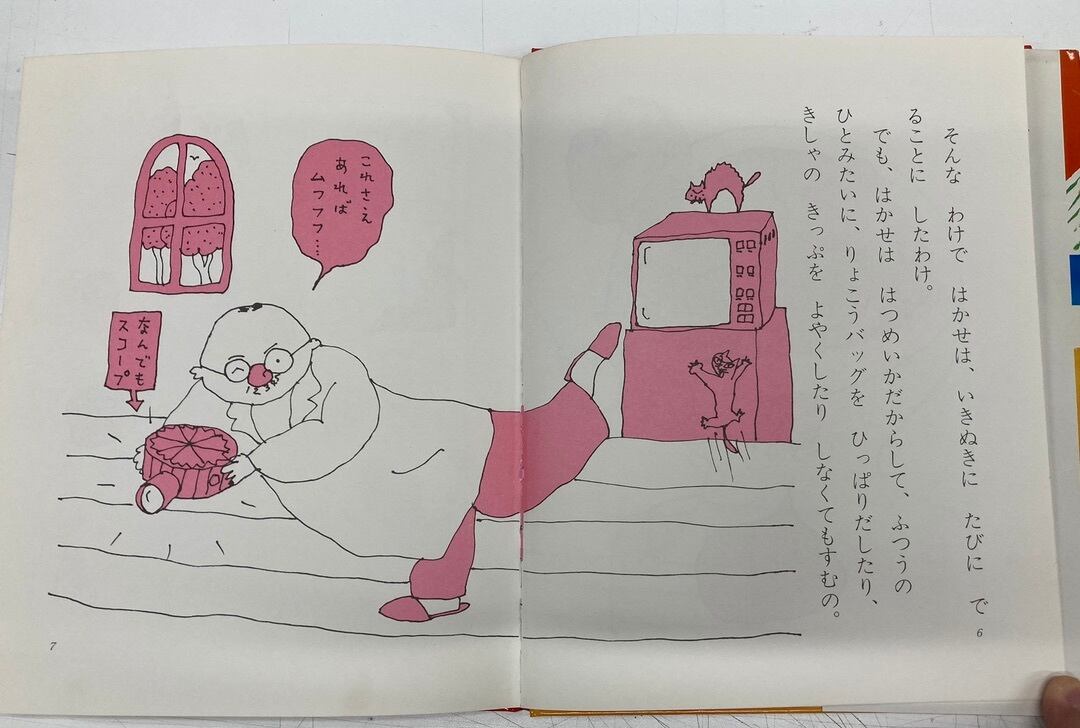 そんな わけで はかせは、いきぬきに たびに で
ることに したわけ。
でも、はかせは はつめいかだからして、ふつうの
ひとみたいに、りょこうバッグを ひっぱりだしたり、
きしゃの きっぷを よやくしたり しなくてもすむの。
6
これさえ
あれば
ムフフフ……
なんでも
スコープ
7